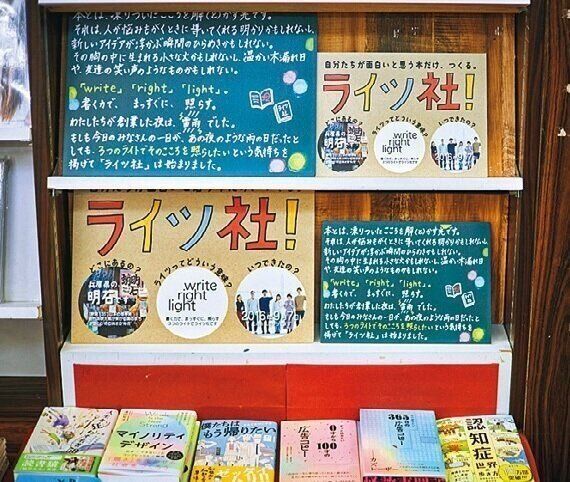 本とは、凍りついたこころを解(と)かす光です。
それは、人が悩みもがくときに導いてくれる明かりかもしれないし、
新しいアイデアが浮かぶ瞬間のひらめきかもしれない。
その胸の中に生まれる小さな火かもしれないし、温かい木漏れ日
や、友達の笑い声のようなものかもしれない。
「write」「right」「light」。
書く力で、まっすぐに、照らす。
わたしたちが創業した夜は、雷雨でした。
もしも今日のみなさんの一日が、あの夜のような雨の日だったと
しても、3つのライトでそのこころを照らしたいという気持ちを
掲げて「ライツ社」は始まりました。
自分たちが面白いと思う本だけ、つくる。
ライツ社!
どこにあるの?
ライツってどういう意味?
兵庫県の
明石
write
right
light
ライツ社!
どこにあるの?
ライツってどういう意味?
いつできたの?
兵庫県の
明石
write
right
light
書く力で、まっすぐに、照らす
3つのライトでライツ社です
2016年9月7日
本とは、凍りついたこころを解(と)かす光です。
それは、人が悩みもがくときに導いてくれる明かりかもしれないし、
新しいアイデアが浮かぶ瞬間のひらめきかもしれない。
その胸の中に生まれる小さな火かもしれないし、温かい木漏れ日
や、友達の笑い声のようなものかもしれない。
「write」「right」「light」。
書く力で、まっすぐに、照らす。
わたしたちが創業した夜は、雷雨でした。
もしも今日のみなさんの一日が、あの夜のような雨の日だったと
しても、3つのライトでそのこころを照らしたいという気持ちを
掲げて「ライツ社」は始まりました。
読書
マイノリティ
デザイン
僕たちは
もう帰りたい
広告コピー
365
広告コピー
認知症
世界の
歩き方